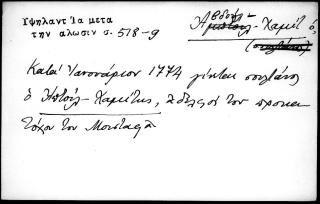 Υψηλαντ Ία μετα
την αλωσιν σ. 518-9
Αβδούλ-Χαμίτ ὁ,
(σουλτάνος)
Κατά Ἰανουάριον 1774 γίνεται σουλτάνος
ὁ Ἀπτούλ-Χαμίτης, ἀδελφός του προκα
τόχου του Μουσταφᾶ